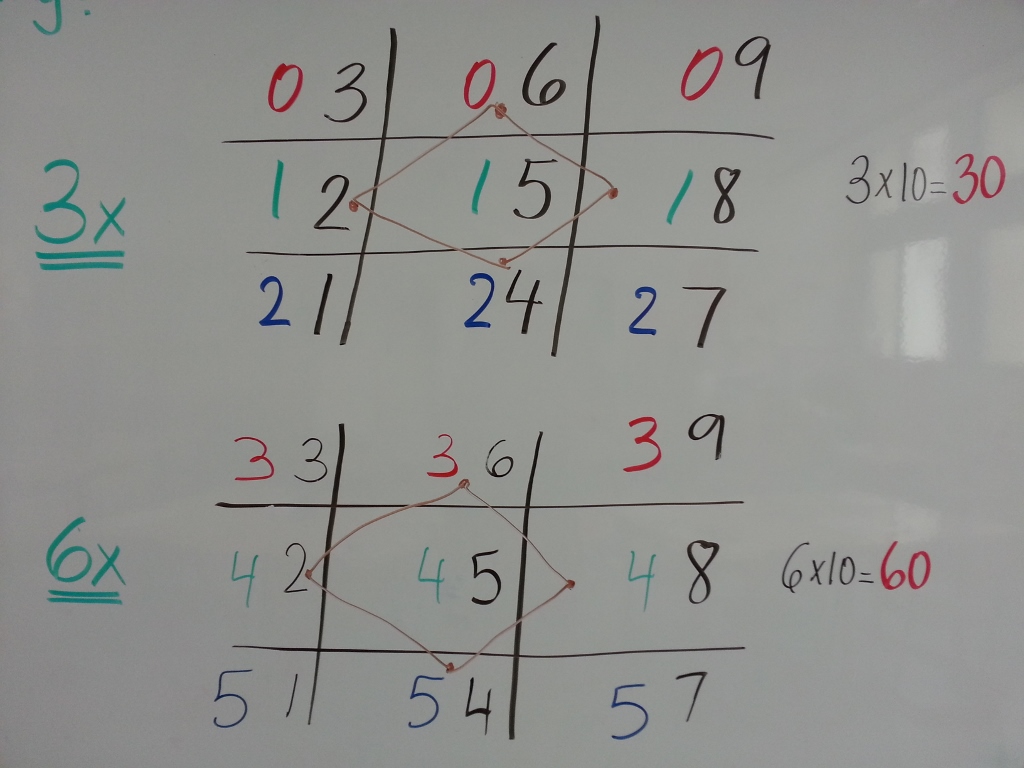 03 06 09
3x 12 15 18 3x10=30
21 24 27
33 36 39
6x 42 45 48 6x10=60
51 54 57